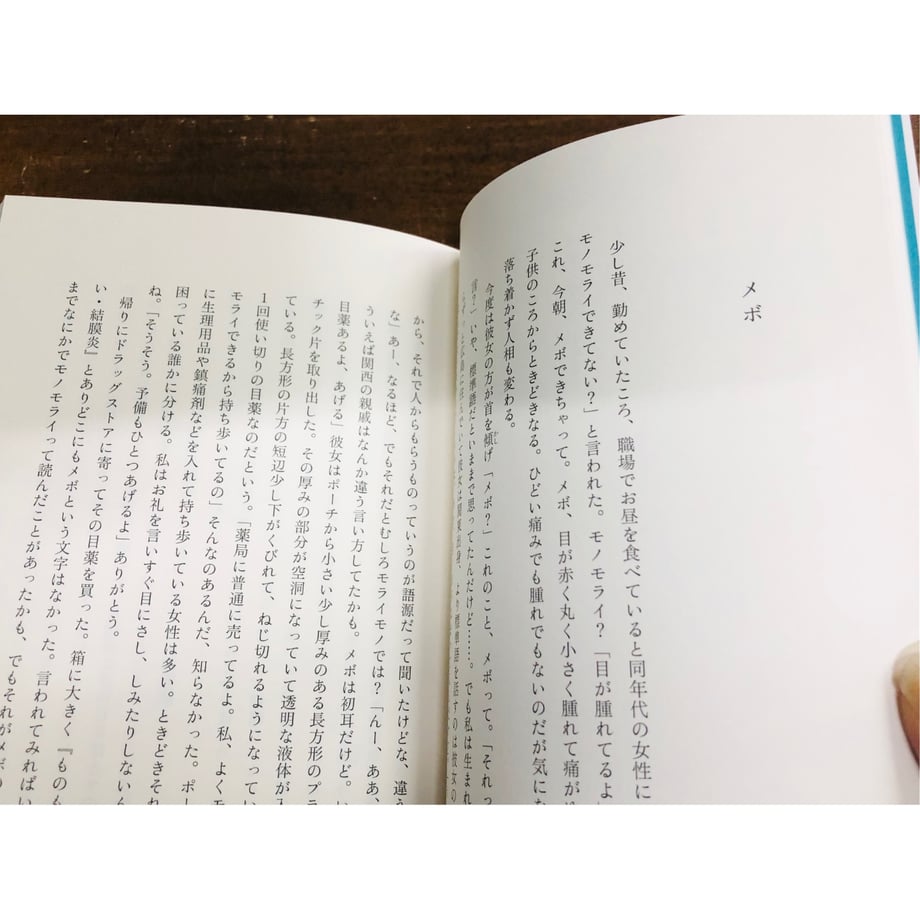 メボ
少し昔、勤めていたころ、職場でお昼を食べていると同年代の女性に
モノモライできてない？」と言われた。モノモライ？「目が腫れてるよ
これ、今朝、メボできちゃって。メボ、目が赤く丸く小さく腫れて痛が
子供のころからときどきなる。ひどい痛みでも腫れでもないのだが気にな
落ち着かず人相も変わる。
今度は彼女の方が首を傾げ「メボ？」これのこと、メボって。「それっ
言？」いや、標準語だといままで思ってたんだけど……。でも私は生まれ
彼女は関東出身、より標準語を話すのは彼女の
から、それで人からもらうものっていうのが語源だって聞いたけどな、違う
な」あー、なるほど、でもそれだとむしろモライモノでは？「んー、ああ、
ういえば関西の親戚はなんか違う言い方してたかも。メボは初耳だけど。
目薬あるよ、あげる」彼女はポーチから小さい少し厚みのある長方形のプラ
チック片を取り出した。その厚みの部分が空洞になっていて透明な液体が入
ている。長方形の片方の短辺少し下がくびれて、ねじ切れるようになってい
1回使い切りの目薬なのだという。「薬局に普通に売ってるよ。私、よくモ
モライできるから持ち歩いてるの」そんなのあるんだ、知らなかった。ポー
に生理用品や鎮痛剤などを入れて持ち歩いている女性は多い。ときどきそれ
困っている誰かに分ける。私はお礼を言いすぐ目にさし、しみたりしないん
ね。「そうそう。予備もひとつあげるよ」ありがとう。
帰りにドラッグストアに寄ってその目薬を買った。箱に大きく『ものも
い・結膜炎』とありどこにもメボという文字はなかった。言われてみればい
までなにかでモノモライって読んだことがあったかも、でもそれがメボの